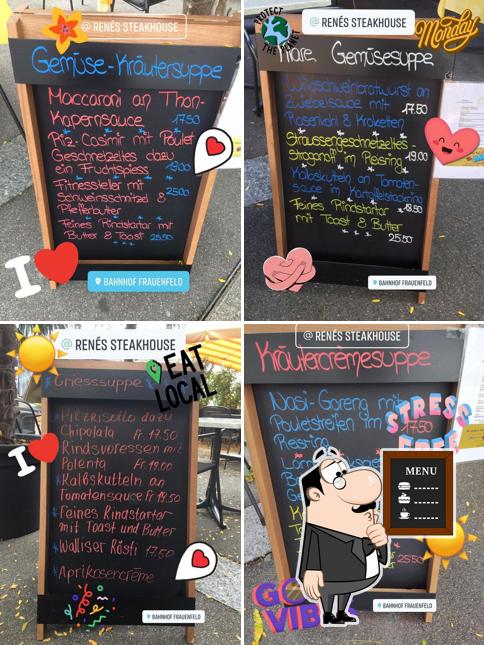 @ RENÉS STEAKHOUSE
Gemüse-Kräutersuppe
Maccaroni an Thon-
Kapernsauce 17.50
Riz-Casimir mit Poulet
Geschnetzeltes dazu
ein Fruchtspiess 19.00
Fitnessteller mit
Schweinsschnitzel & 25.00
Pfefferbutter
Feines Rindstartar mit
Butter & Toast 25.50
I
BAHNHOF FRAUENFELD
PROTECT
THE PLANET
@ RENÉS STEAKHOUSE
Monday
Klare Gemüsesuppe
Wildschweinbratwurst an
Zwiebelsauce mit 17.50
Rosenkohl & Kroketten
Straussengeschnetzeltes -
Stroganoff im Reisring 19.00
Kalbskutteln an Tomaten-
sauce im Kartoffelstockring
18.50
Feines Rindstartar
mit Toast & Butter
25.50
BAHNHOF FRAUENFELD
@ RENÉS STEAKHOUSE
EAT
LOCAL
Griesssuppe
Pilzrisotto dazu
Chipolata Fr 17.50
I
Rindsvoressen mit
Polenta Fr. 19.00
Kalbskutteln an
Tomatensauce Fr 18.50
Feines Rindstartar
mit Toast und Butter
Walliser Rösti 17.50
Aprikosencrème
BAHNHOF FRAUENFELD
@ RENÉS STEAKHOUSE
Kräutercremesuppe
Nasi-Goreng mit
Pouletstreifen im
17.50
Reisring
STRESS
FREE
MENU
25.50
GOOD
VIBES
BAHNHOF FRAUENFELD